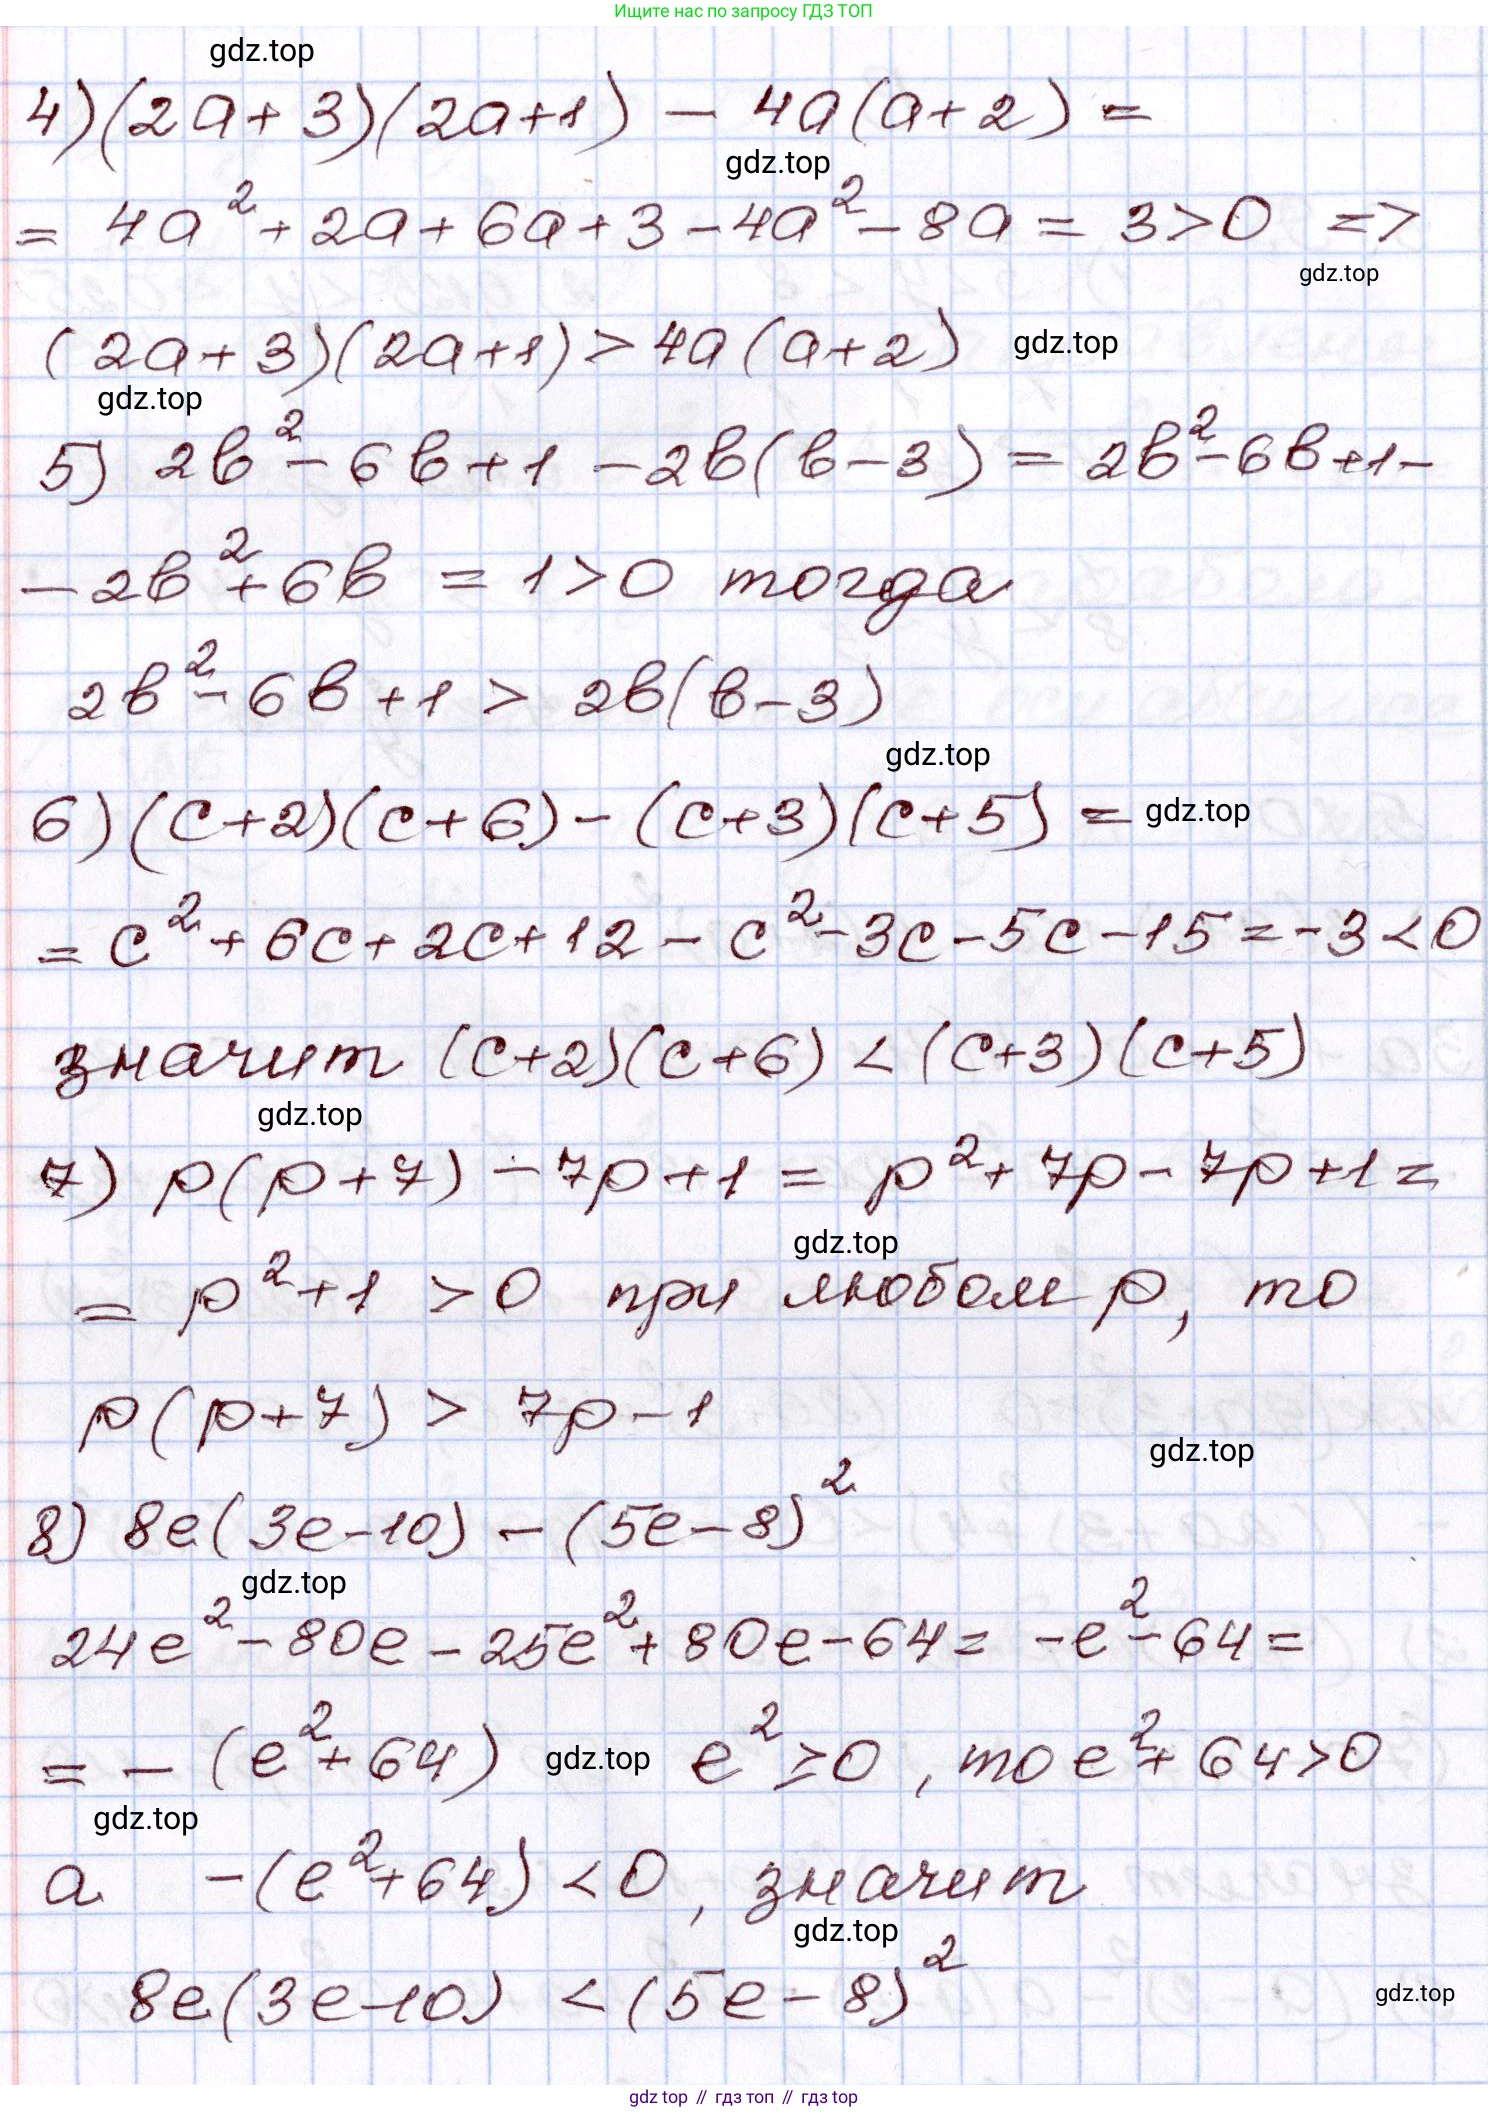 Ищите нас по запросу ГДЗ ТОП
gdz.top
4) (2a+3)(2a+1) - 4a(a+2) =
gdz.top
= 4a² + 2a + 6a + 3 - 4a² - 8a = 3 > 0 =>
gdz.top
(2a+3)(2a+1) > 4a(a+2) gdz.top
gdz.top
5) 2в² - 6в + 1 - 2в(в-3) = 2в² - 6в + 1 -
- 2в² + 6в = 1 > 0 тогда
2в² - 6в + 1 > 2в(в-3)
gdz.top
6) (c+2)(c+6) - (c+3)(c+5) = gdz.top
= c² + 6c + 2c + 12 - c² - 3c - 5c - 15 = -3 < 0
значит (c+2)(c+6) < (c+3)(c+5)
gdz.top
7) p(p+7) - 7p + 1 = p² + 7p - 7p + 1 =
gdz.top
= p² + 1 > 0 при любом p, то
p(p+7) > 7p - 1
gdz.top
8) 8e(3e-10) - (5e-8)²
gdz.top
24e² - 80e - 25e² + 80e - 64 = -e² - 64 =
= - (e² + 64) gdz.top e² ≥ 0, то e² + 64 > 0
gdz.top
а -(e² + 64) < 0, значит
gdz.top
8e(3e-10) < (5e-8)²
gdz.top
gdz top // гдз топ // гдз top